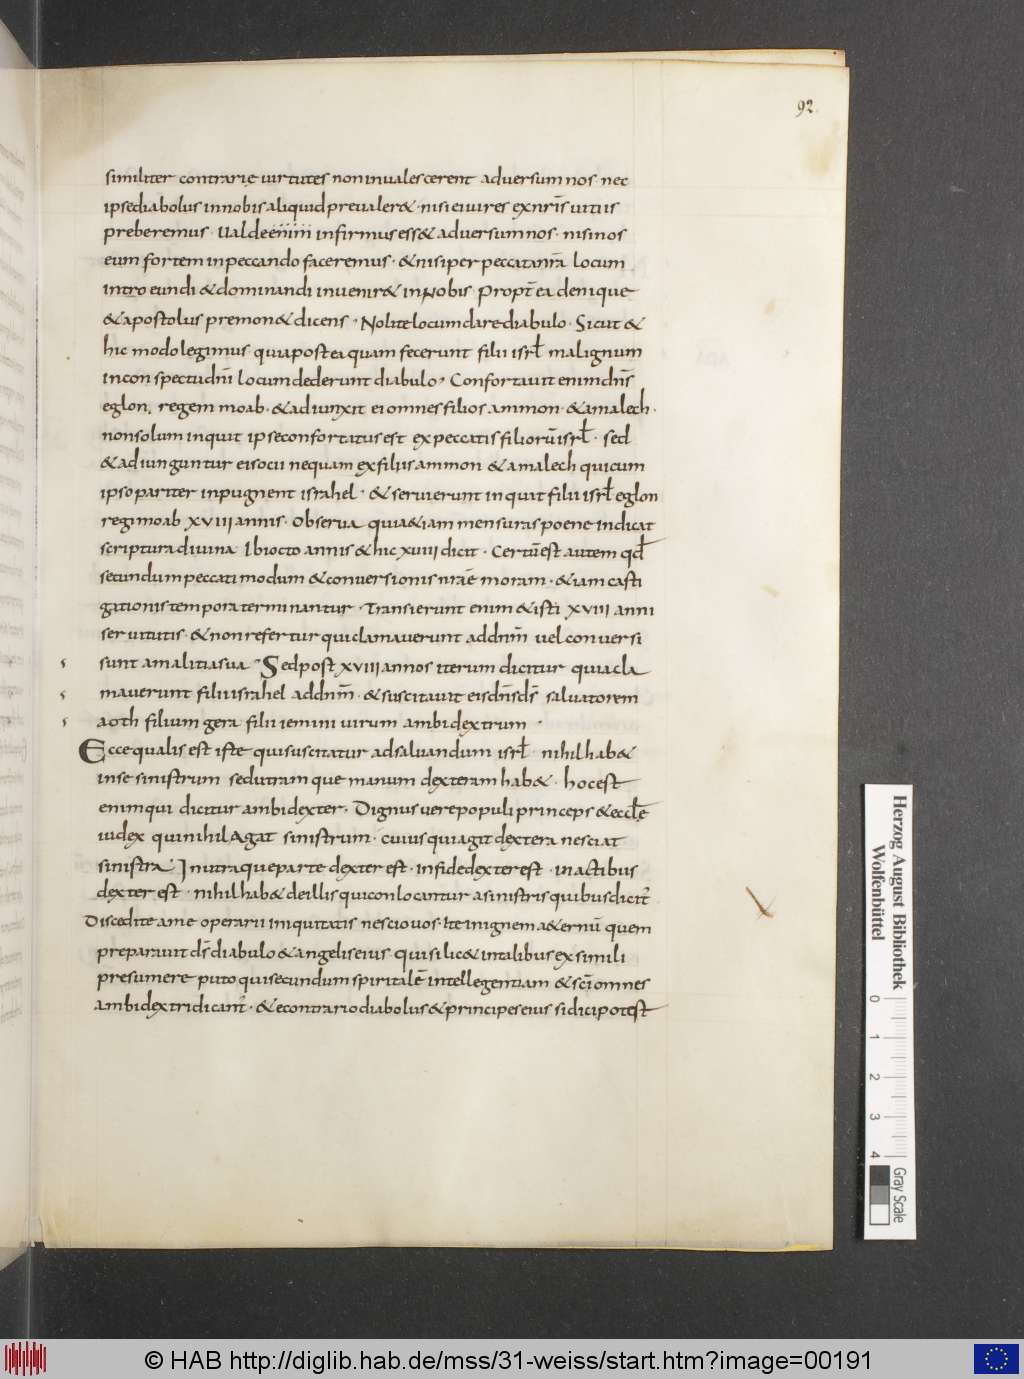 92.
similiter contrarię uirtutes non inualescerent aduersum nos · nec
ipse diabolus in nobis aliquid preualer& · nisi ei uires ex nr̄is uitiis
preberemus · Ualde enim infirmus ess& aduersum nos · nisi nos
eum fortem in peccando faceremus · & nisi per peccata nr̄a locum
introeundi & dominandi inuenir& in Nobis Propt̄ ea denique
& apostolus premon& dicens · Nolite locum dare diabolo · Sicut &
hic modo legimus quia postea quam fecerunt filii isrl̄ malignum
in conspectu dn̄i locum dederunt diabolo · Confortauit enim dn̄s
eglon, regem moab · & adiunxit ei omnes filios ammon · & amalech ·
non solum inquit ipse confortatus est ex peccatis filiorū isrl̄ · sed
& adiunguntur ei socii nequam ex filiis ammon & amalech qui cum
ipso pariter inpugnent israhel · & seruierunt inquit filii isrl̄ eglon
regi moab XVIII annis · Obserua quia &iam mensuras poene indicat
scriptura diuina Ibi octo annis & hic XVIII dicit · Certū est autem qd̄
secundum peccati modum & conuersionis nr̄ae moram · &iam casti
gationis tempora terminantur · Transierunt enim & isti XVIII anni
seruitutis · & non refertur qui clamauerunt ad dn̄m uel conuersi
sunt a malitia sua · Sed post XVIII annos iterum dicitur quia cla
mauerunt filii israhel ad dn̄m · & suscitauit eis dn̄s ds̄ saluatorem
aoth filium gera filii iemini uirum ambidextrum ·
Ecce qualis est iste qui suscitatur ad saluandum isrl̄ · nihil hab&
in se sinistrum sed utramque manum dexteram hab& · hoc est
enim qui dicitur ambidexter · Dignus uere populi princeps & eccl̄ę
iudex qui nihil Agat sinistrum · cuius qui agit dextera nesciat
sinistra · In utraque parte dexter est · in fide dexter est · in actibus
dexter est · nihil hab& de illis qui conlocantur a sinistris quibus dicit̄
Discedite a me operarii iniquitatis nescio uos · Ite in ignem a&ernū quem
preparauit ds̄ diabulo & angelis eius · quis ilic& in talibus ex simili
presumere puto qui secundum spiritalē intellegentiam & sc̄i omnes
ambidextri dicant̄ · & e contrario diabolus & principes eius si dici potest
Herzog August Bibliothek
Wolfenbüttel
0 1 2 3 4
Gray Scale
© HAB http://diglib.hab.de/mss/31-weiss/start.htm?image=00191